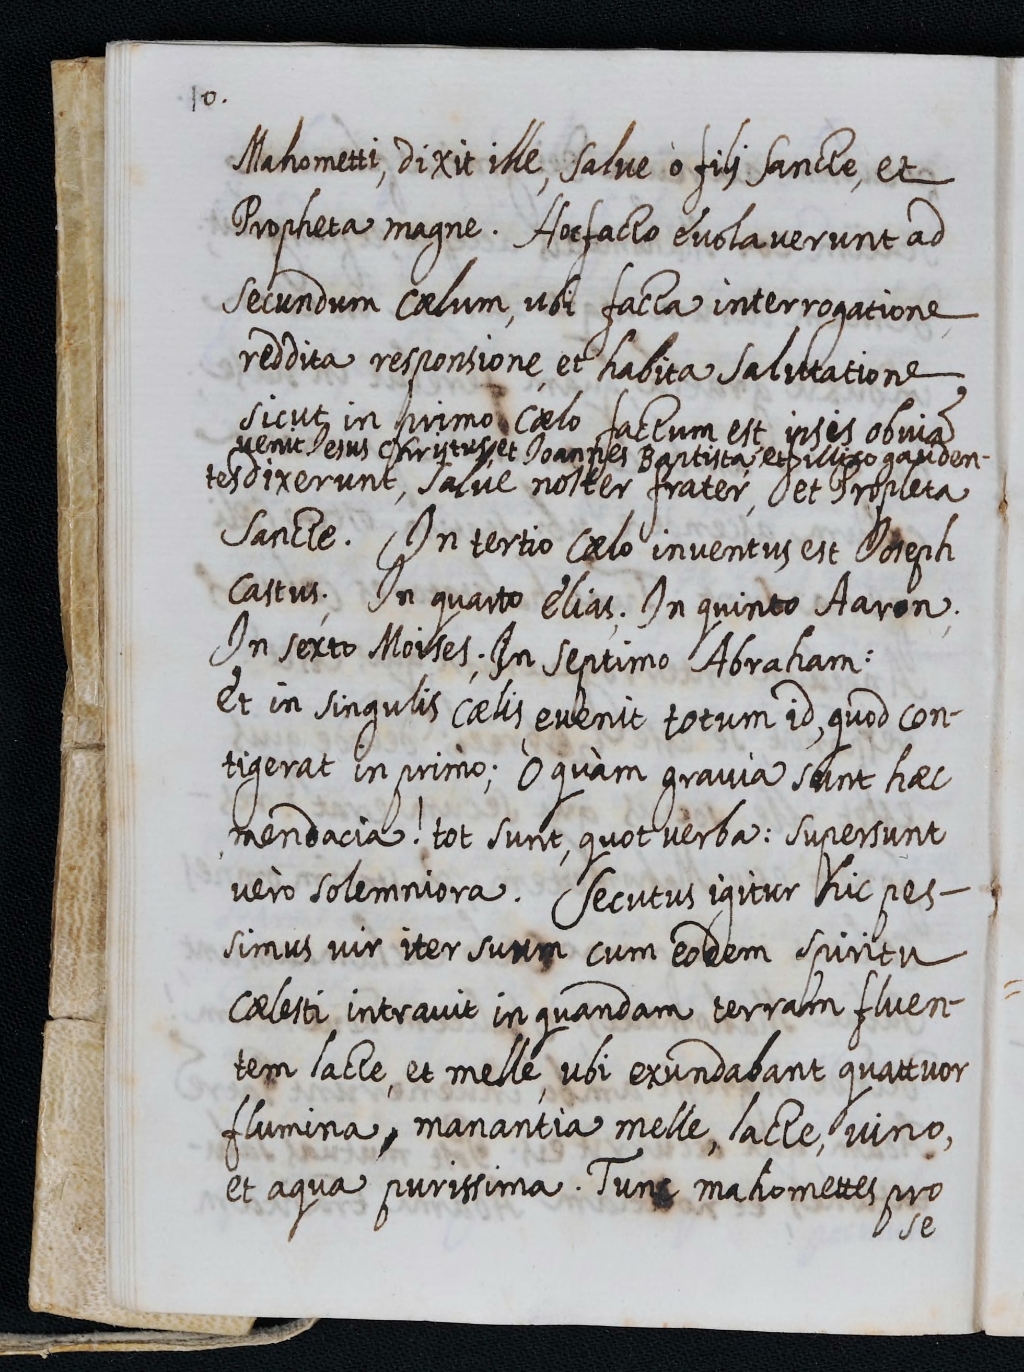 10.
Mahometti, dixit ille, salve ò filj sancte, et
Propheta magne. Hoc facto evolaverunt ad
secundum cælum, ubi facta interrogatione
reddita responsione, et habita salutatione
sicut in primo Cælo factum est, ipsis obviã
venit Iesus Christus, et Joannes Baptista, et illico gauden-
tes dixerunt, salve noster frater, et Propheta
Sancte. In tertio Cælo inventus est Joseph
Castus; In quarto Elias; In quinto Aaron;
In sexto Moises; In septimo Abraham:
Et in singulis Cælis evenit totum id, quod con-
tigerat in primò; O quàm gravia sunt hæc
mendacia! tot sunt, quot verba: supersunt
verò solemniora. Secutus igitur hic pes-
simus vir iter suum cum eodem spiritu
Cælesti intravit in quandam terram fluen-
tem lacte, et melle, ubi exundabant quattuor
flumina, manantia melle, lacte, vino,
et aqua purissima. Tunc mahomettes pro
se